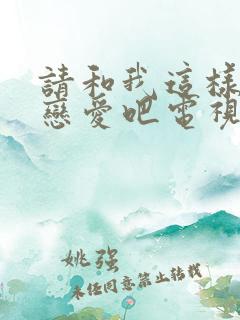 請和我這樣
戀愛吧電視
姚强
未经同意禁止转载